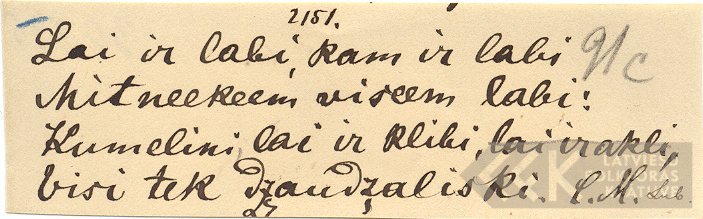 2151.
Lai ir labi, kam ir labi
91c
Mitneekeem viseem labi:
Kumelini, lai ir klibi, lai ir akli,
Visi tek dzandzaliski. C. M. Lub.
LATVIEŠU
FOLKLORAS
KRĀTUVE